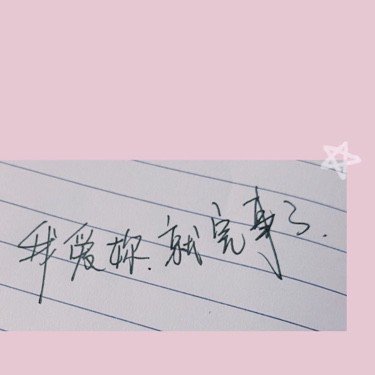 我爱你.就完事了.